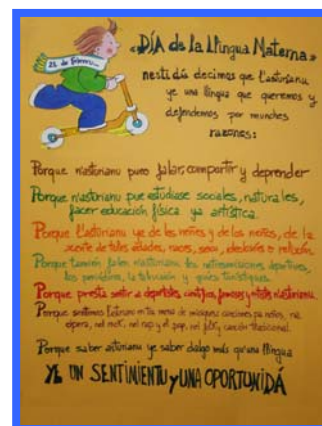 21 de febreru...
«DÍA de la Llingua Materna»
nesti día decimos que l'asturianu
ye una llingua que queremos y
defendemos por munches
razones:
Porque n'asturianu pueo falar, compartir y deprender
Porque n'asturianu pue estudiase sociales, naturales,
facer educación física ya artística.
Porque l'asturianu ye de los neños y de les neñes, de la
xente de toles edaes, races, sexu, o relixón.
Porque tamién falen n'asturianu les retresmisiones deportives,
los periódicos, la televisión y guíes turístiques.
Porque presta sentir a deportistes, n'asturianu.
Porque sentimos l'asturianu en tou mena de músiques: canciones pa neños, na
ópera, nel rock, nel rap y el pop, nel folk, canción tradicional.
Porque saber asturianu ye saber daqué más qu'una llingua
YE UN SENTIMIENTU y UNA OPORTUNIDÁ